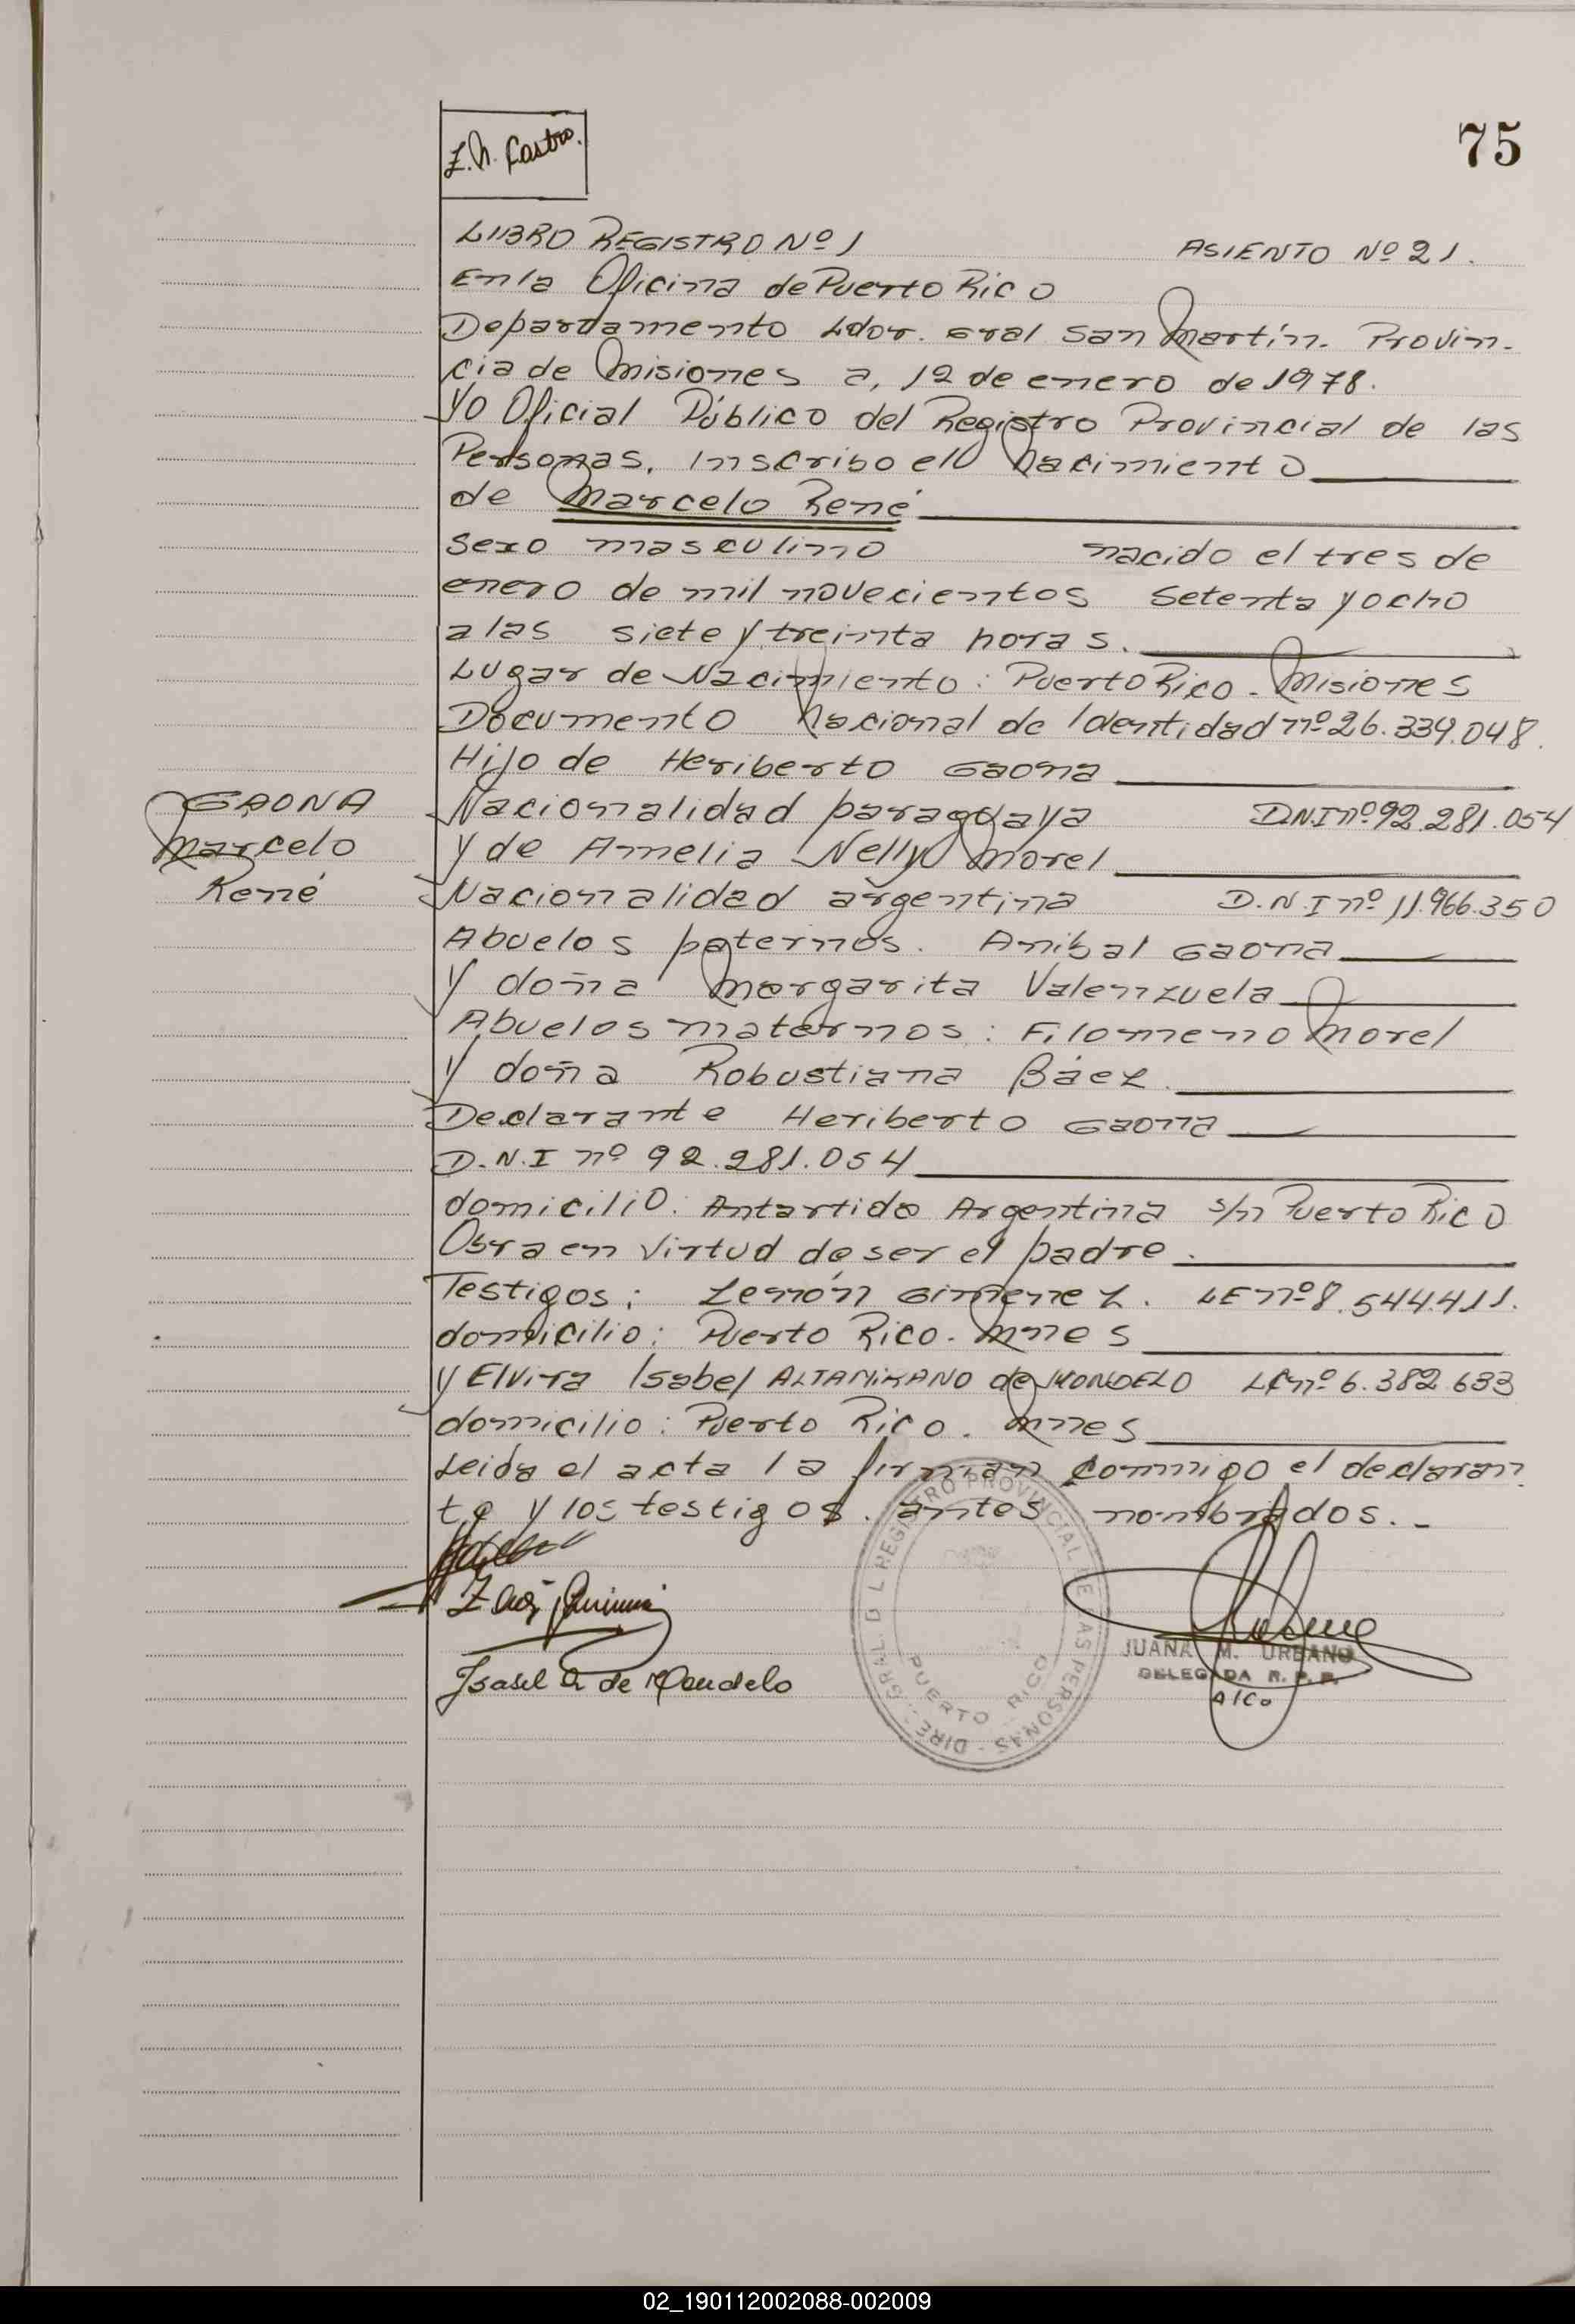 75
Z. N. Castro.
LIBRO REGISTRO Nº 1 ASIENTO Nº 21.
En la Oficina de Puerto Rico
Departamento Ldor. Gral San Martín. Provin-
cia de Misiones a, 12 de enero de 1978.
Yo Oficial Público del Registro Provincial de las
Personas, Inscribo el Nacimiento
de Marcelo René
Sexo masculino nacido el tres de
enero de mil novecientos setenta y ocho
a las siete y treinta horas.
Lugar de Nacimiento: Puerto Rico - Misiones
Documento Nacional de Identidad nº 26.339.048.
Hijo de Heriberto Gaona
GAONA
Marcelo
René
Nacionalidad paraguaya DNI nº 92.281.054
y de Amelia Nelly Morel
Nacionalidad argentina D.N.I nº 11.966.350
Abuelos paternos. Anibal Gaona
Y doña Margarita Valenzuela
Abuelos maternos: Filomeno Morel
Y doña Robustiana Báez
Declarante Heriberto Gaona
D.N.I nº 92.281.054
domicilio: Antartida Argentina s/n Puerto Rico
Obra en virtud de ser el padre.
Testigos: Zenón Gimenez. LE nº 8.544.411.
domicilio: Puerto Rico. Mnes
y Elvira Isabel ALTAMIRANO de MONDELO LC nº 6.382.633
domicilio: Puerto Rico. Mnes
Leida el acta la firman conmigo el declaran
te y los testigos antes nombrados. -
Isabel A de Mondelo
DIRE. GRAL. D L REGISTRO PROVINCIAL DE LAS PERSONAS -
PUERTO RICO
JUANA M. URBANO
DELEGADA R. P. P.
A/Co
02_190112002088-002009